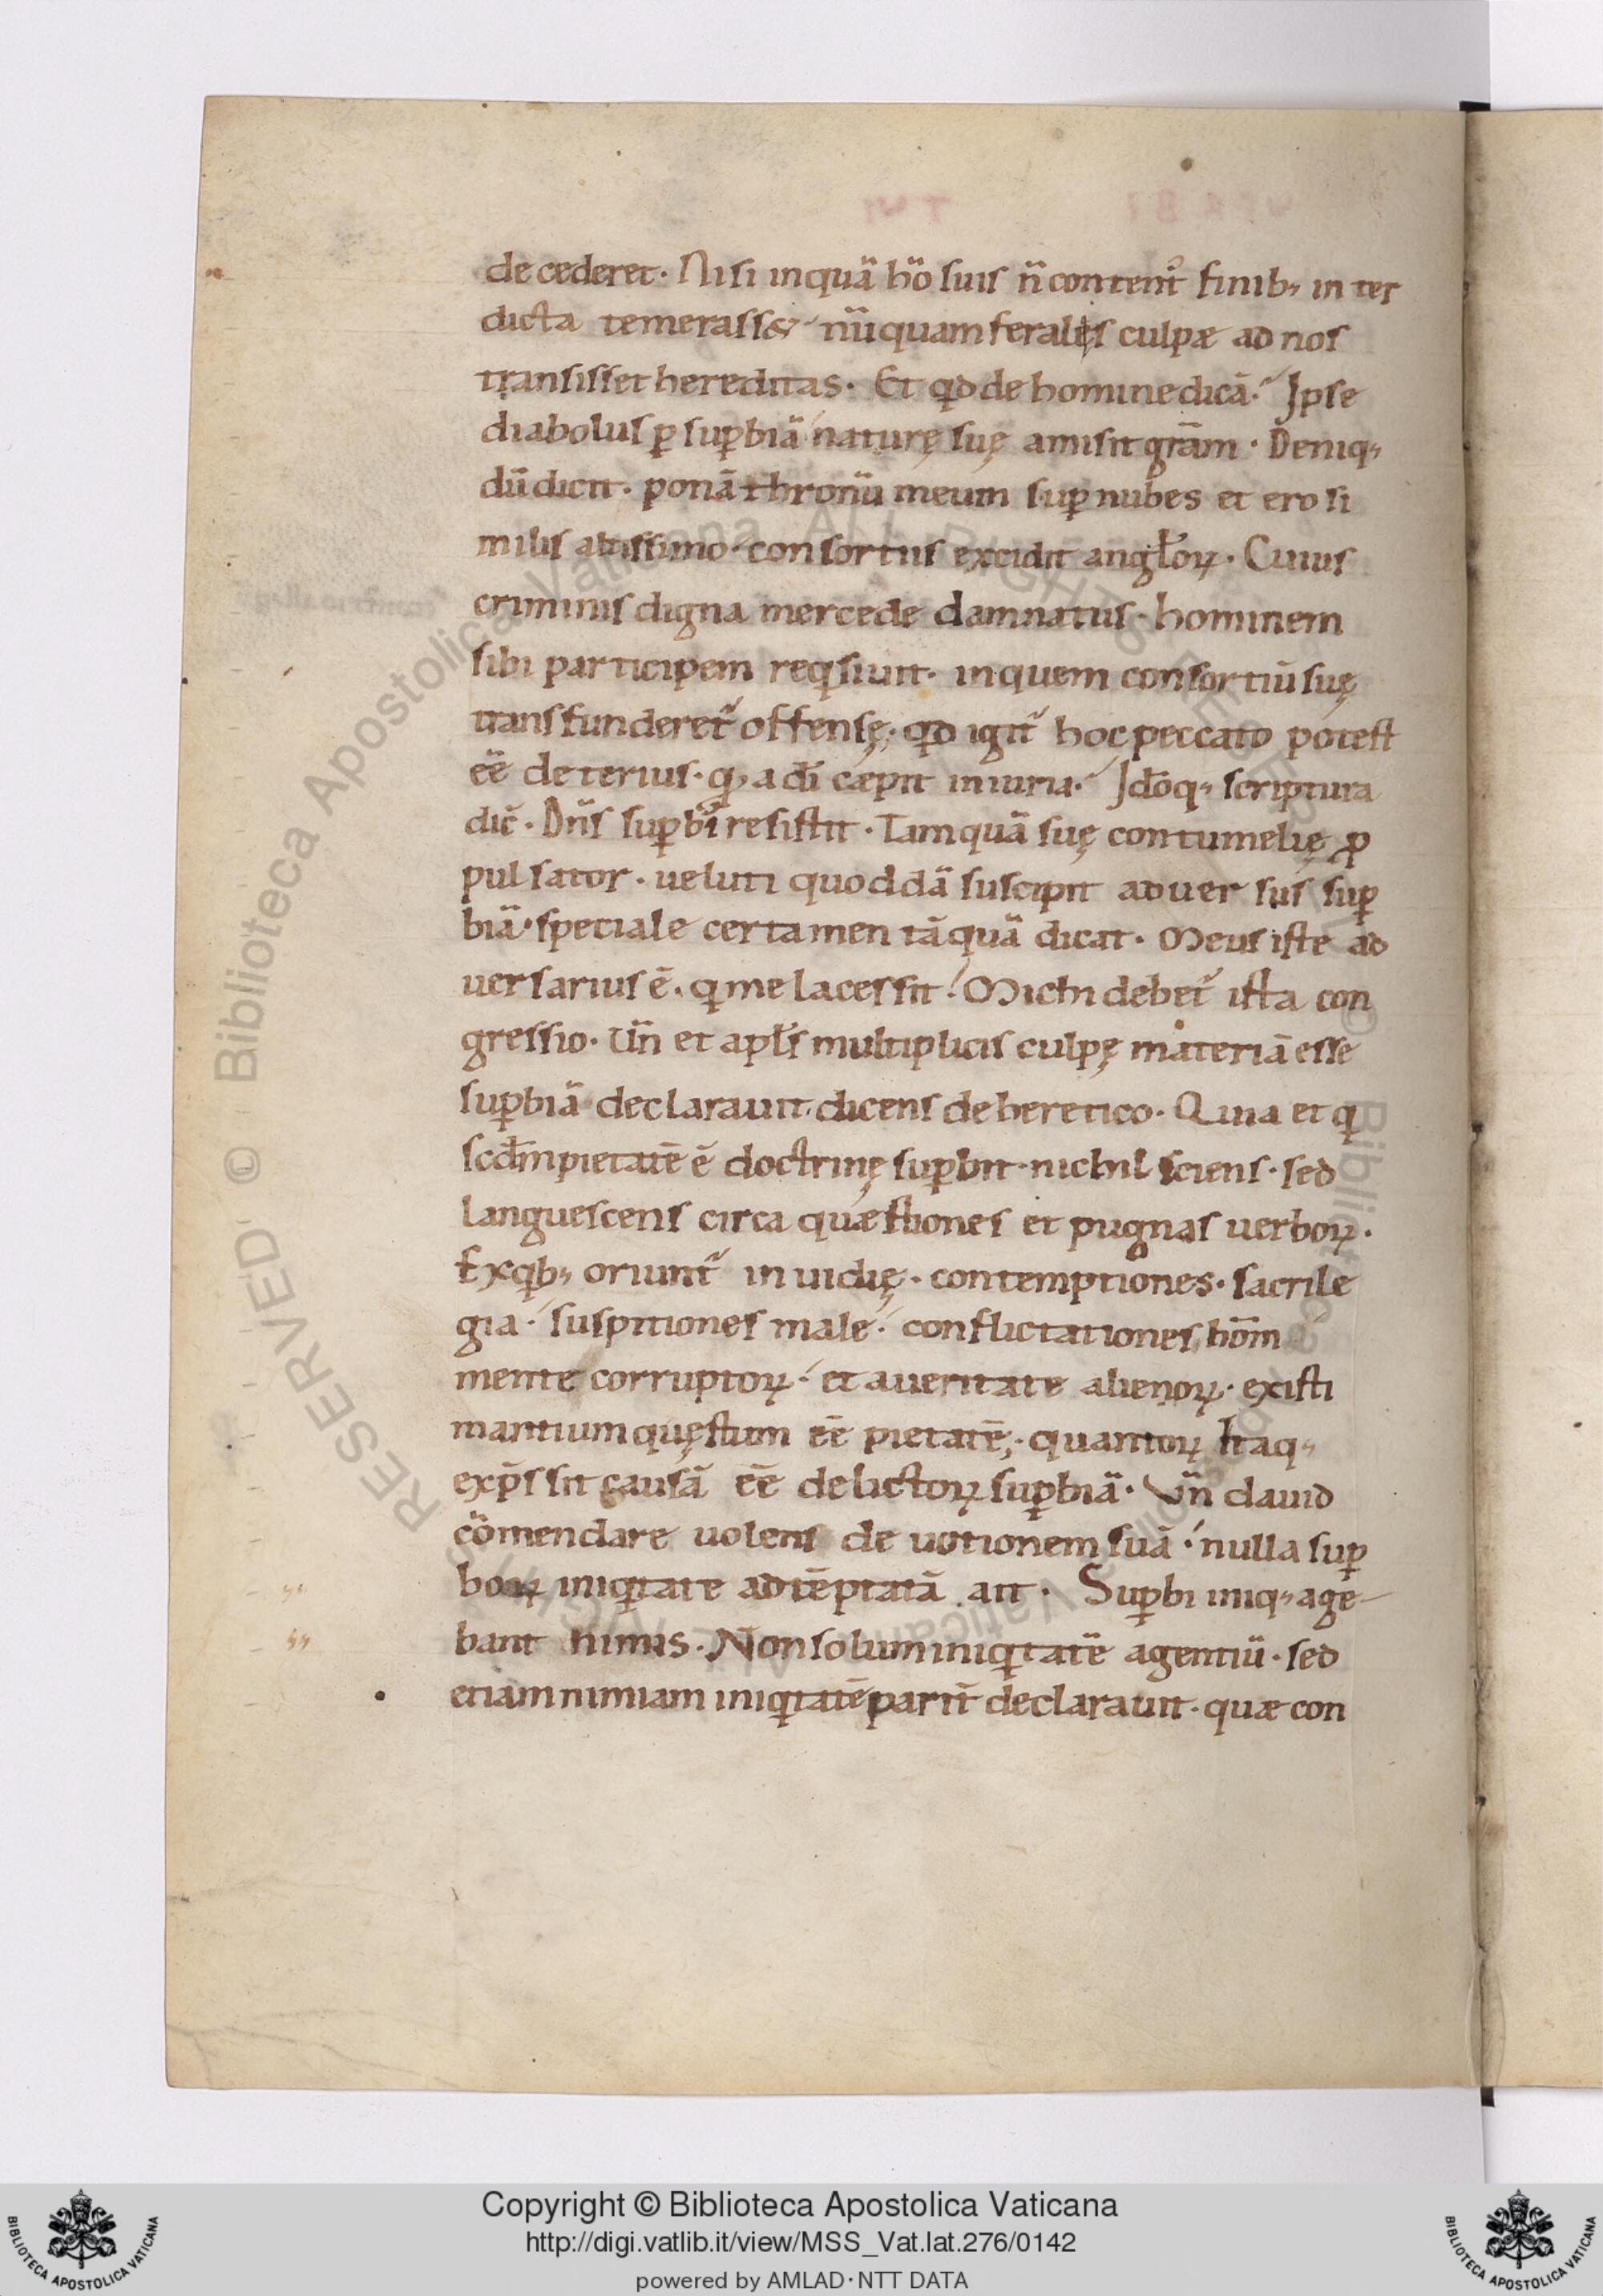 de cederet. Nisi inquā hō suis n̄ content᷒ finib; in ter
dicta temerass& nūquam ferales culpæ ad nos
transisset hereditas. Et qd de homine dicā. Ipse
diabolus ꝑ suꝑbiā naturę suę amisit gr̄am. Deniq;
dū dicit. ponā thronū meum suꝑ nubes et ero si
milis altissimo. consortus excidit anglo̵ꝝ. Cuius
criminis digna mercede damnatus. hominem
sibi participem reqsiuit. in quem consortiū suę
transfunderet᷑ offensę. qd igit᷑ hoc peccato potest
ēē deterius. q̨ a dī cæpit iniuria. Idōq; scriptura
dic̄. Dn̄s suꝑbi᷒ resistit. Tamquā suę contumelię ꝓ
pulsator. ueluti quoddā suscipit aduersus suꝑ
biā. speciale certamen tāquā dicat. Meus iste ad
uersarius ē. q me lacessit. Michi debet᷑ ista con
gressio. Un̄ et apl̄s multiplicis culpę materiā esse
suꝑbiā declarauit. dicens de heretico. Quia et q
scd̄m pietatē ē doctrinę suꝑbit. nichil sciens. sed
languescens circa quæstiones et pugnas uerboꝝ.
Ex qb; oriunt᷑ inuidię. contemptiones. sacrile
gia. suspitiones male. conflictationes hōm
mente corruptoꝝ. et a ueritate alienoꝝ. existi
mantium quęstum ēē pietatē;. quantoꝝ Itaq;
exp̄ssit causā ēē delictoꝝ suꝑbiā. Un̄ dauid
cōmendare uolens deuotionem suā. nulla suꝑ
boꝝ iniqtate adtēptatā ait. Suꝑbi iniq; age-
bant nimis. Non solum iniqtatē agentiū. sed
etiam nimiam iniqtatē parit᷑ declarauit. quæ con
Copyright © Biblioteca Apostolica Vaticana
http://digi.vatlib.it/view/MSS_Vat.lat.276/0142
powered by AMLAD·NTT DATA